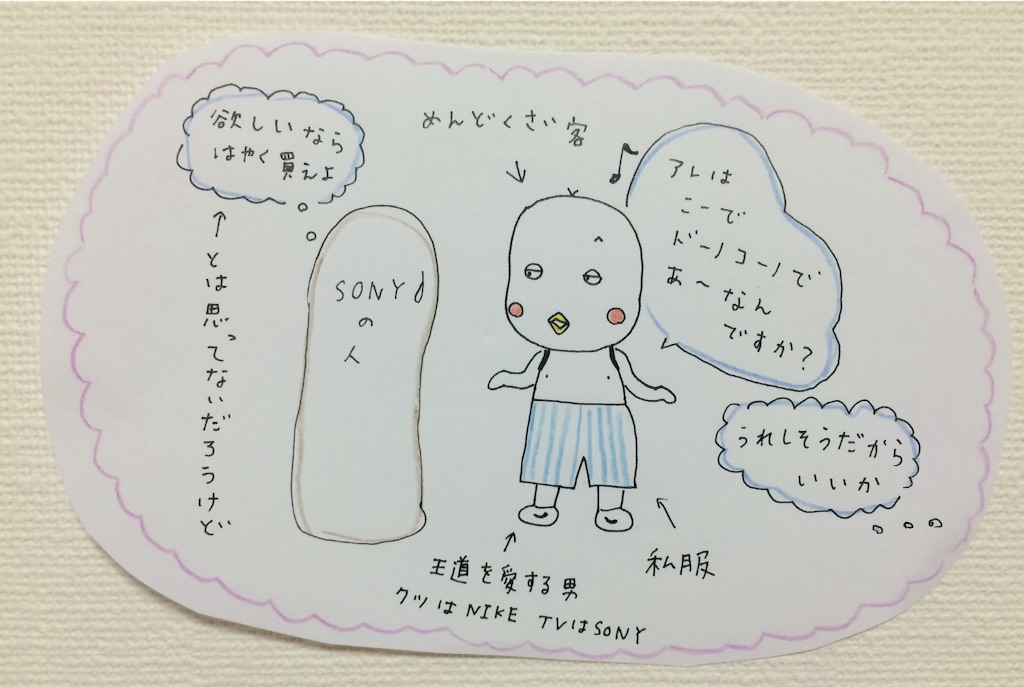 欲しいなら
はやく買えよ
↑とは思ってないだろうけど
SONY
の
人
めんどくさい客
アレは
こーで
ドーノコーノで
あ〜なん
ですか?
うれしそうだから
いいか
私服
王道を愛する男
クツはNIKE TVはSONY